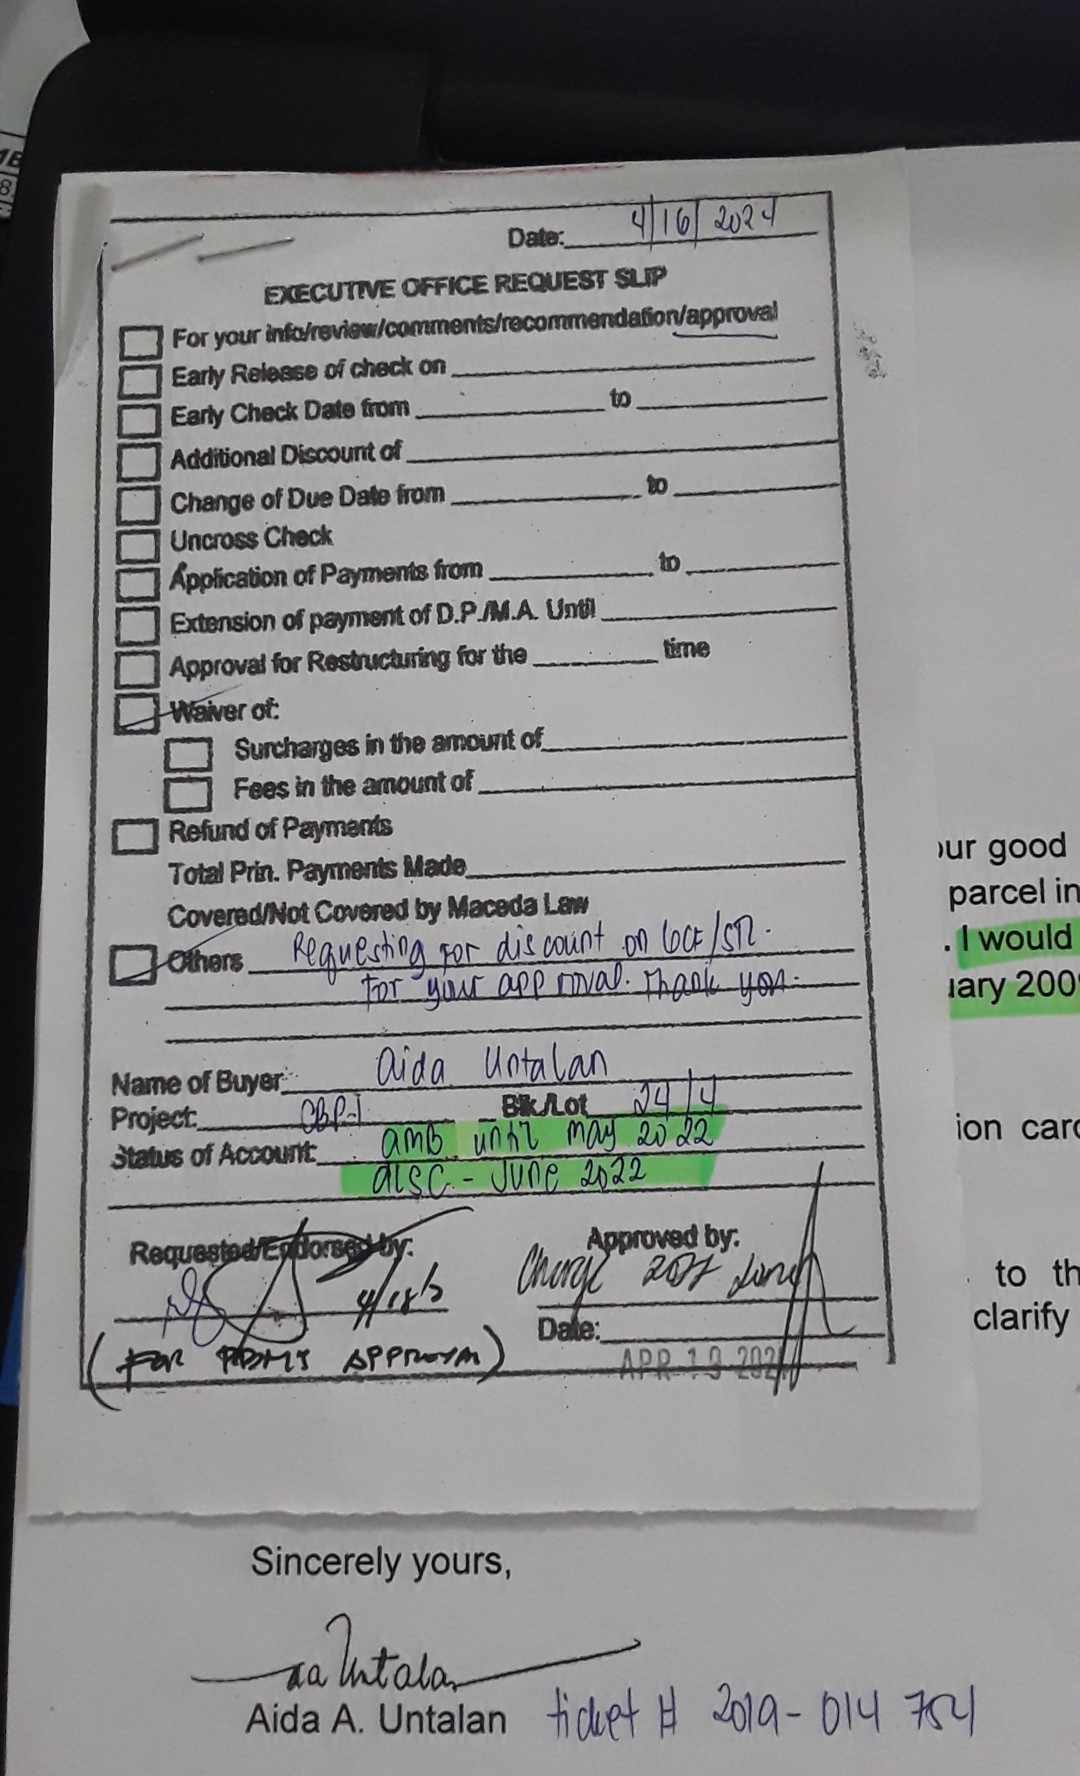 Date: 4/16/2024
EXECUTIVE OFFICE REQUEST SLIP
For your info/review/comments/recommendation/approval
Early Release of check on
Early Check Date from to
Additional Discount of
Change of Due Date from to
Uncross Check
Application of Payments from to
Extension of payment of D.P./M.A. Until
Approval for Restructuring for the time
Waiver of:
Surcharges in the amount of
Fees in the amount of
Refund of Payments
Total Prin. Payments Made
Covered/Not Covered by Maceda Law
Others Requesting for discount on
for your approval. Thank you.
Name of Buyer Aida Untalan
Project: CBP-1 Blk./Lot 24/4
Status of Account: amb until may 2022
disc. - June 2022
Requested/Endorsed by: Approved by:
Charge
Date:
(FOR APPROVAL)
APR 202
our good
parcel in
. I would
uary 2009
ion card
to th
clarify
Sincerely yours,
Aida A. Untalan ticket # 2019-014 754